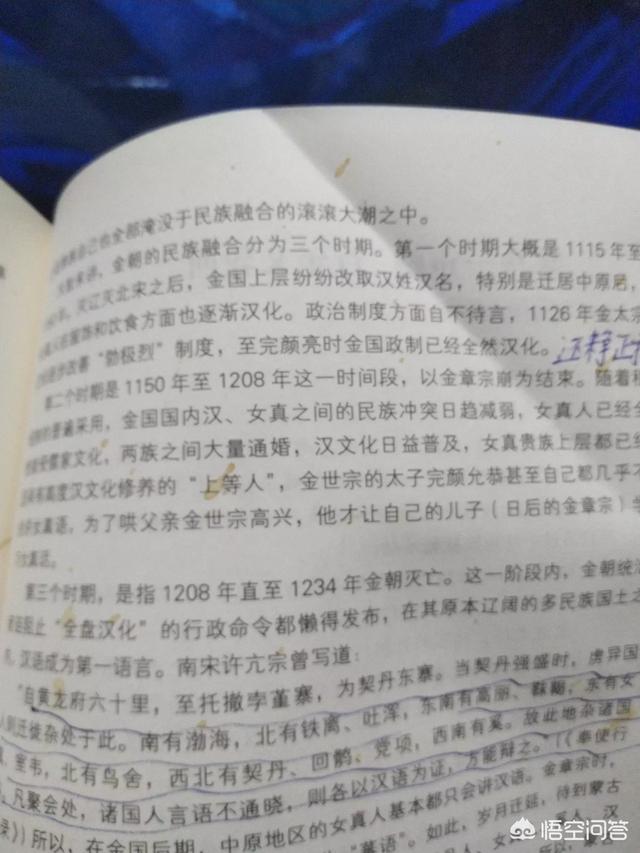 自己也全部淹没于民族融合的滚滚大潮之中。
来讲,金朝的民族融合分为三个时期。第一个时期大概是1115年至
灭辽灭北宋之后,金国上层纷纷改取汉姓汉名,特别是迁居中原后,
在服饰和饮食方面也逐渐汉化。政治制度方面自不待言,1126年金太宗
改善“勃极烈”制度,至完颜亮时金国政制已经全然汉化。
第二个时期是1150年至1208年这一时间段,以金章宗崩为结束。随着
普遍采用,金国国内汉、女真之间的民族冲突日趋减弱,女真人已经全
儒家文化,两族之间大量通婚,汉文化日益普及,女真贵族上层都已
有高度汉文化修养的“上等人”,金世宗的太子完颜允恭甚至自己都几乎不
女真语,为了哄父亲金世宗高兴,他才让自己的儿子(日后的金章宗)学
女真话。
第三个时期,是指1208年直至1234年金朝灭亡。这一阶段内,金朝统治
阻止“全盘汉化”的行政命令都懒得发布,在其原本辽阔的多民族国土之
,汉语成为第一语言。南宋许亢宗曾写道:
“自黄龙府六十里,至托撤孛堇寨,为契丹东寨。当契丹强盛时,虏异国
人则迁徙杂处于此。南有渤海,北有铁离、吐浑,东南有高丽、靺鞨,东有女
室韦,北有乌舍,西北有契丹、回鹘、党项,西南有奚。故此地杂诸国
凡聚会处,诸国人言语不通晓,则各以汉语为证,方能辩之。”(《奉使行
录》)所以,在金国后期,中原地区的女真人基本都只会讲汉语。金章宗时,
语”。如此,岁月迁延,待到蒙古
悟空问答